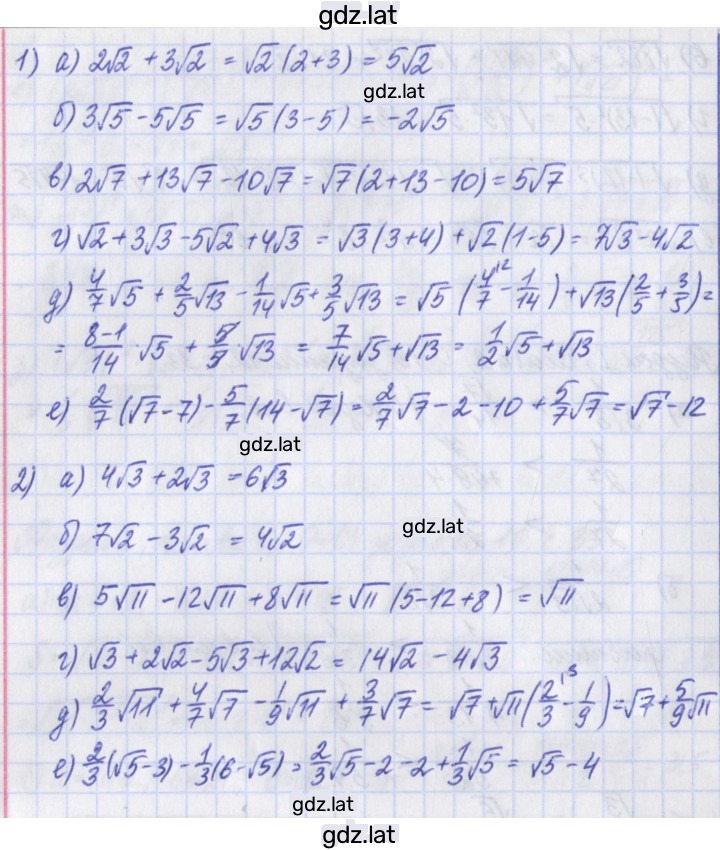 gdz.lat
1) а) 2√2 + 3√2 = √2 (2+3) = 5√2
gdz.lat
б) 3√5 - 5√5 = √5 (3-5) = -2√5
в) 2√7 + 13√7 - 10√7 = √7 (2+13-10) = 5√7
г) √2 + 3√3 - 5√2 + 4√3 = √3 (3+4) + √2 (1-5) = 7√3 - 4√2
д) 4/7 √5 + 2/5 √13 - 1/14 √5 + 3/5 √13 = √5 (4/7 ^12 - 1/14) + √13 (2/5 + 3/5) =
= 8-1/14 √5 + 5/5 √13 = 7/14 √5 + √13 = 1/2 √5 + √13
е) 2/7 (√7 - 7) - 5/7 (14 - √7) = 2/7 √7 - 2 - 10 + 5/7 √7 = √7 - 12
gdz.lat
2) а) 4√3 + 2√3 = 6√3
б) 7√2 - 3√2 = 4√2
gdz.lat
в) 5√11 - 12√11 + 8√11 = √11 (5-12+8) = √11
г) √3 + 2√2 - 5√3 + 12√2 = 14√2 - 4√3
д) 2/3 √11 + 4/7 √7 - 1/9 √11 + 3/7 √7 = √7 + √11 (2/3 ^13 - 1/9) = √7 + 5/9 √11
е) 2/3 (√5 - 3) - 1/3 (6 - √5) = 2/3 √5 - 2 - 2 + 1/3 √5 = √5 - 4
gdz.lat
gdz.lat